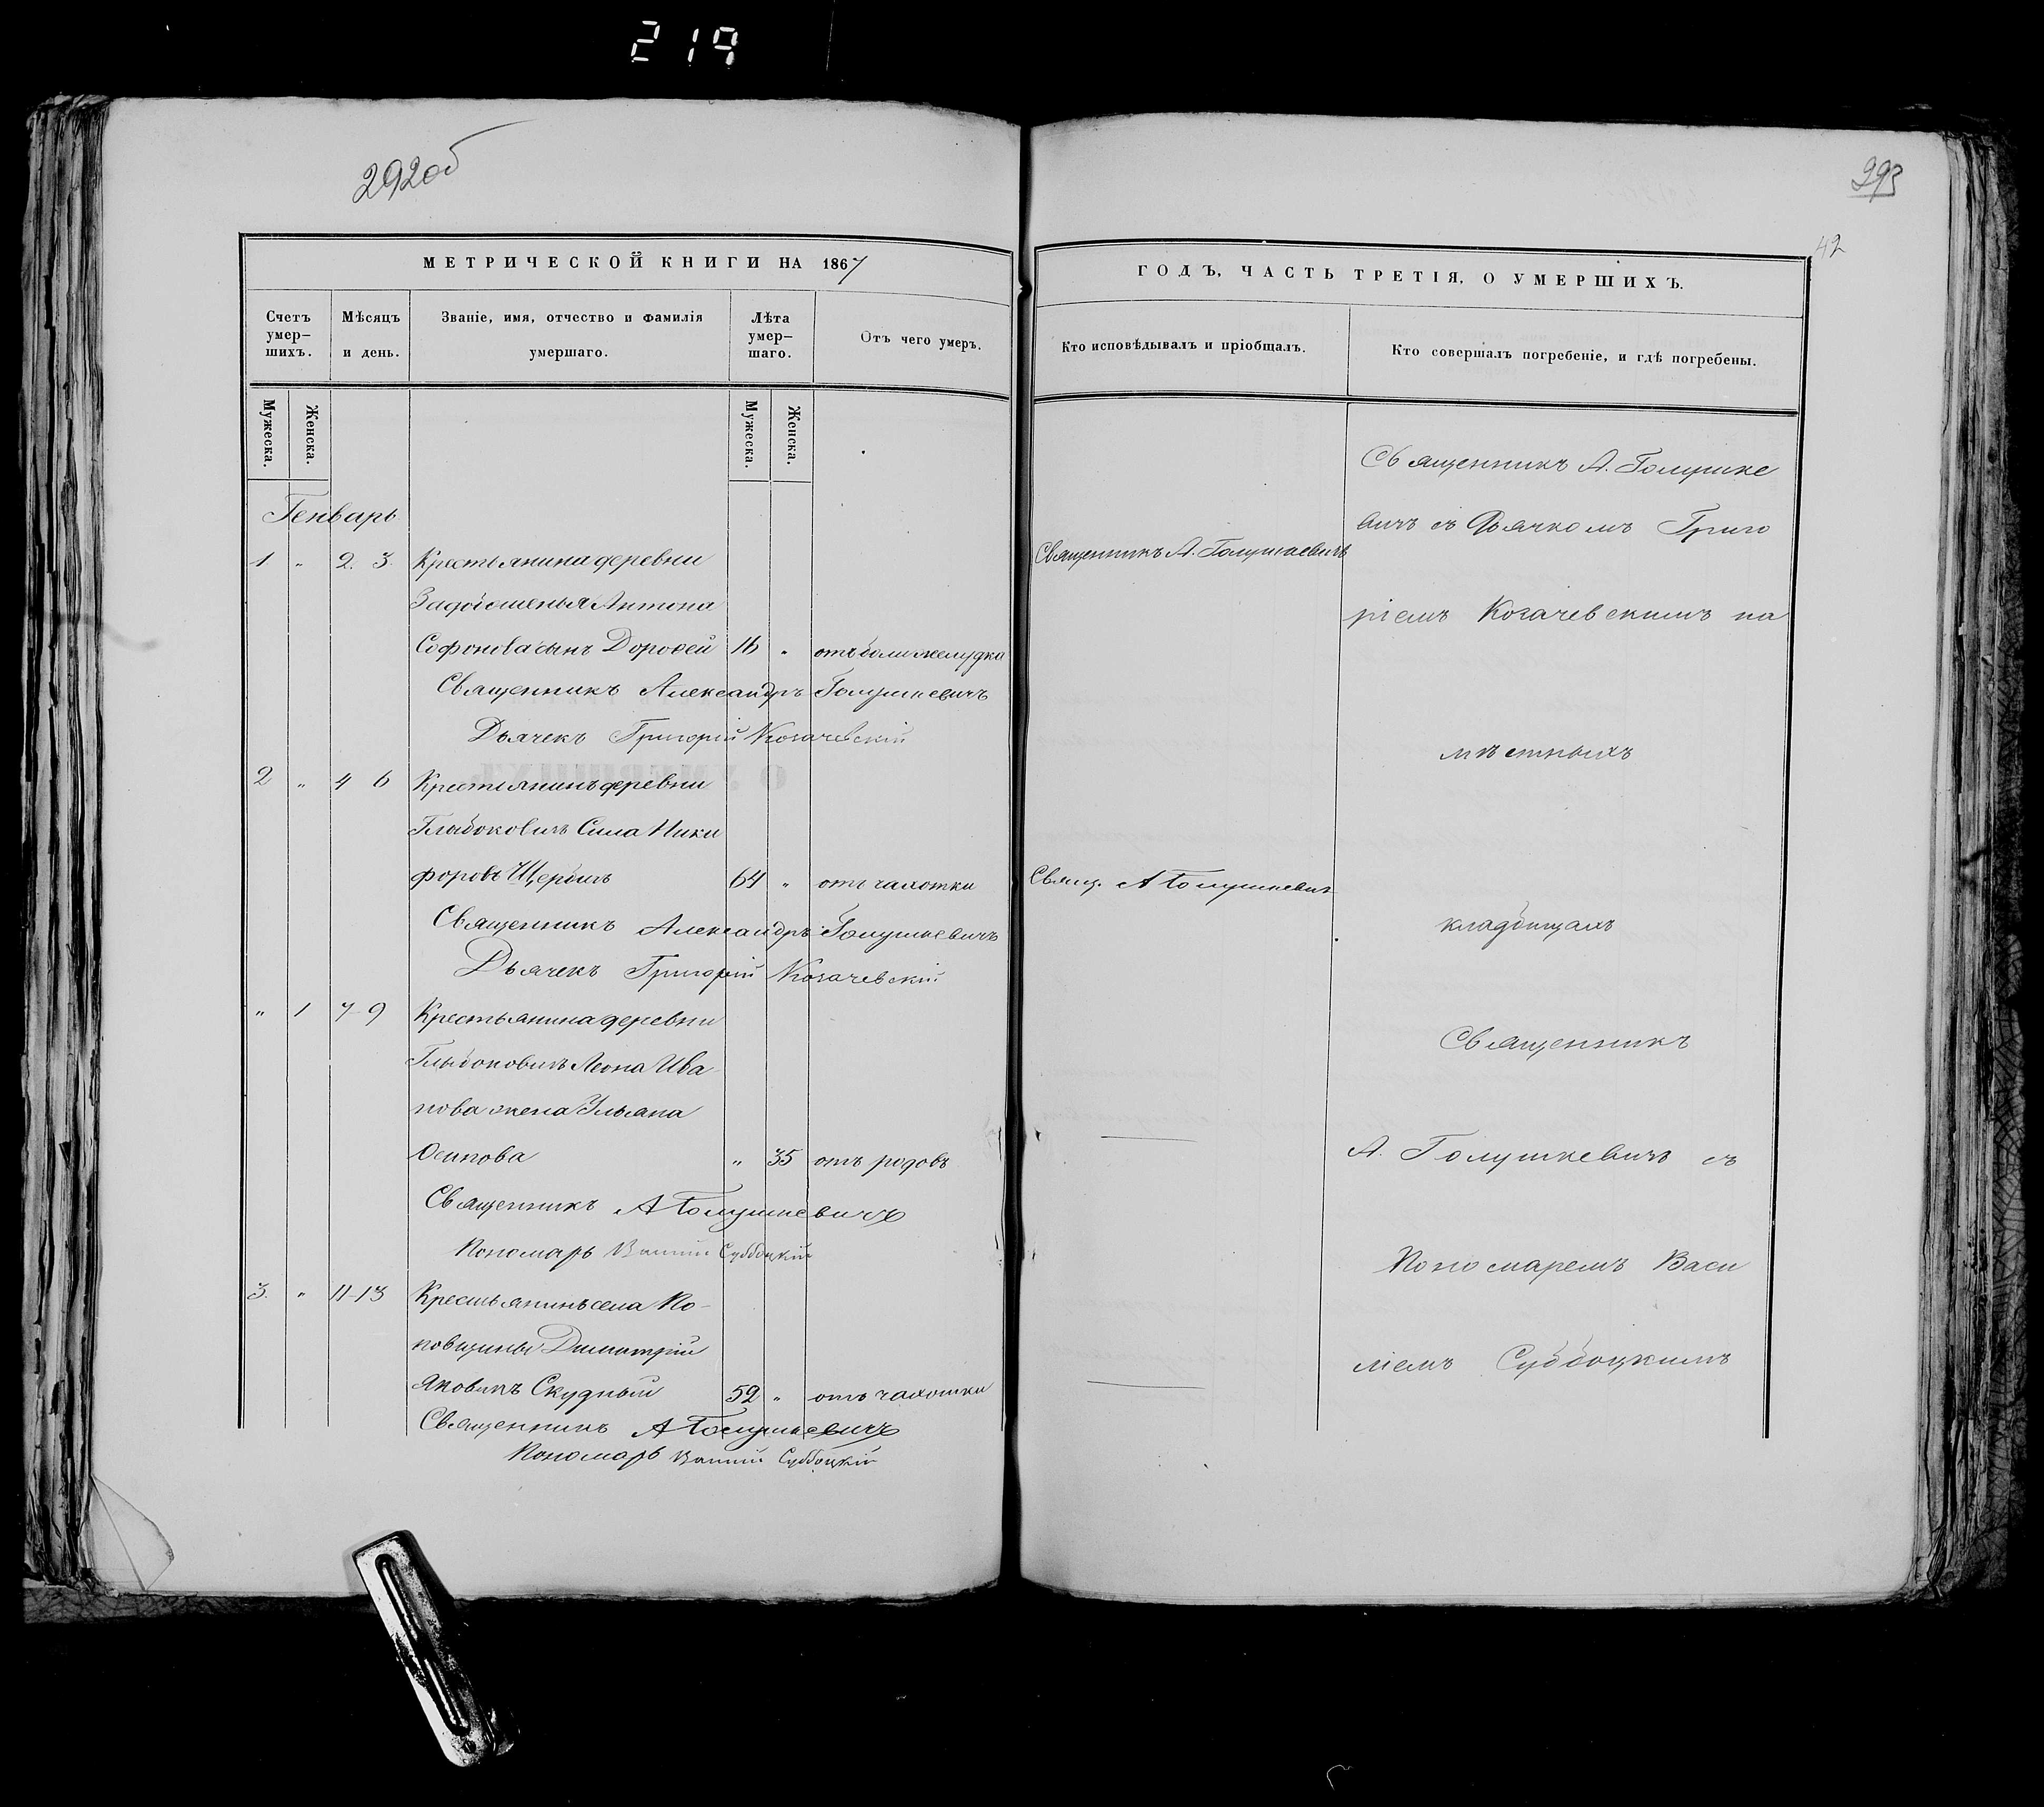 219
292об
МЕТРИЧЕСКОЙ КНИГИ НА 1867
Счетъ умер-шихъ.
Мѣсяцъ и день.
Званіе, имя, отчество и фамилія умершаго.
Лѣта умер-шаго.
Отъ чего умеръ.
Мужеска.
Женска.
Мужеска.
Женска.
Генварь
1 " 2. 3. Крестьянина деревни
Антона
Софонова сынъ Дорофей 16 " отъ боли желудка
Священникъ Александръ Голушкевичъ
Дьячекъ Григорій Когачевскій
2 " 4 6 Крестьянинъ деревни
Глыбоковичъ Сила Ники
форовъ 64 " отъ чахотки
Священникъ Александръ Голушкевичъ
Дьячекъ Григорій Когачевскій
" 1 7-9 Крестьянина деревни
Глыбоковичъ Леона Ива
нова жена Ульяна
Осипова " 35 отъ родовъ
Священникъ А Голушкевичъ
Пономарь Василій Суббоцкій
3. " 11-13 Крестьянинъ села По-
повщины Димитрій
Яковичъ Скудный 52 " отъ чахотки
Священникъ А Голушкевичъ
Пономарь Василій Суббоцкій
293
42
ГОДЪ, ЧАСТЬ ТРЕТІЯ, О УМЕРШИХЪ.
Кто исповѣдывалъ и пріобщалъ.
Кто совершалъ погребеніе, и гдѣ погребены.
Священникъ А. Голушкевичъ
Свящ. А Голушкевичъ
Священникъ А. Голушке
вичъ съ Дьячкомъ Григо
ріемъ Когачевскимъ на
мѣстныхъ
кладбищахъ
Священникъ
А. Голушкевичъ съ
Пономаремъ Васи
ліемъ Суббоцкимъ